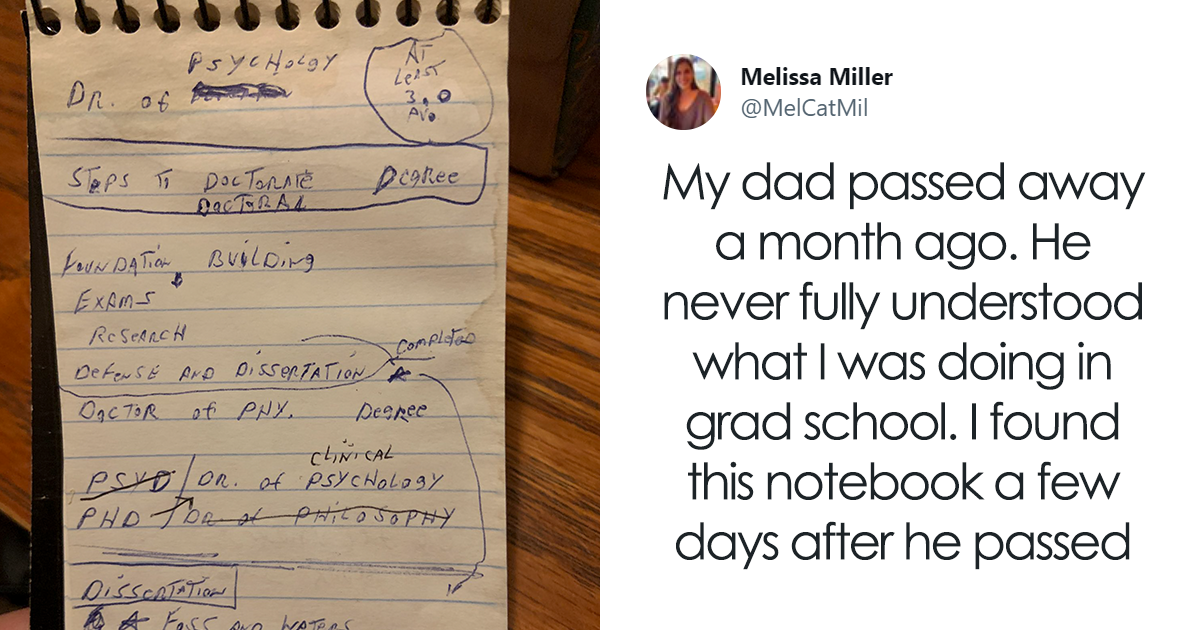 PSYCHOLGY
DR. of
AT
LEAST
3.0
AVG
STEPS TO DOCTORATE DEGREE
DOCTORAL
FOUNDATION BUILDING
EXAMS
RESEARCH
COMPLETED
DEFENSE AND DISSERTATION
DOCTOR of PHY. DEGREE
CLINICAL
PSYD / DR. of PSYCHOLOGY
PHD / DR of PHILOSOPHY
DISSERTATION
FOSS AND WATERS
Melissa Miller
@MelCatMil
My dad passed away
a month ago. He
never fully understood
what I was doing in
grad school. I found
this notebook a few
days after he passed